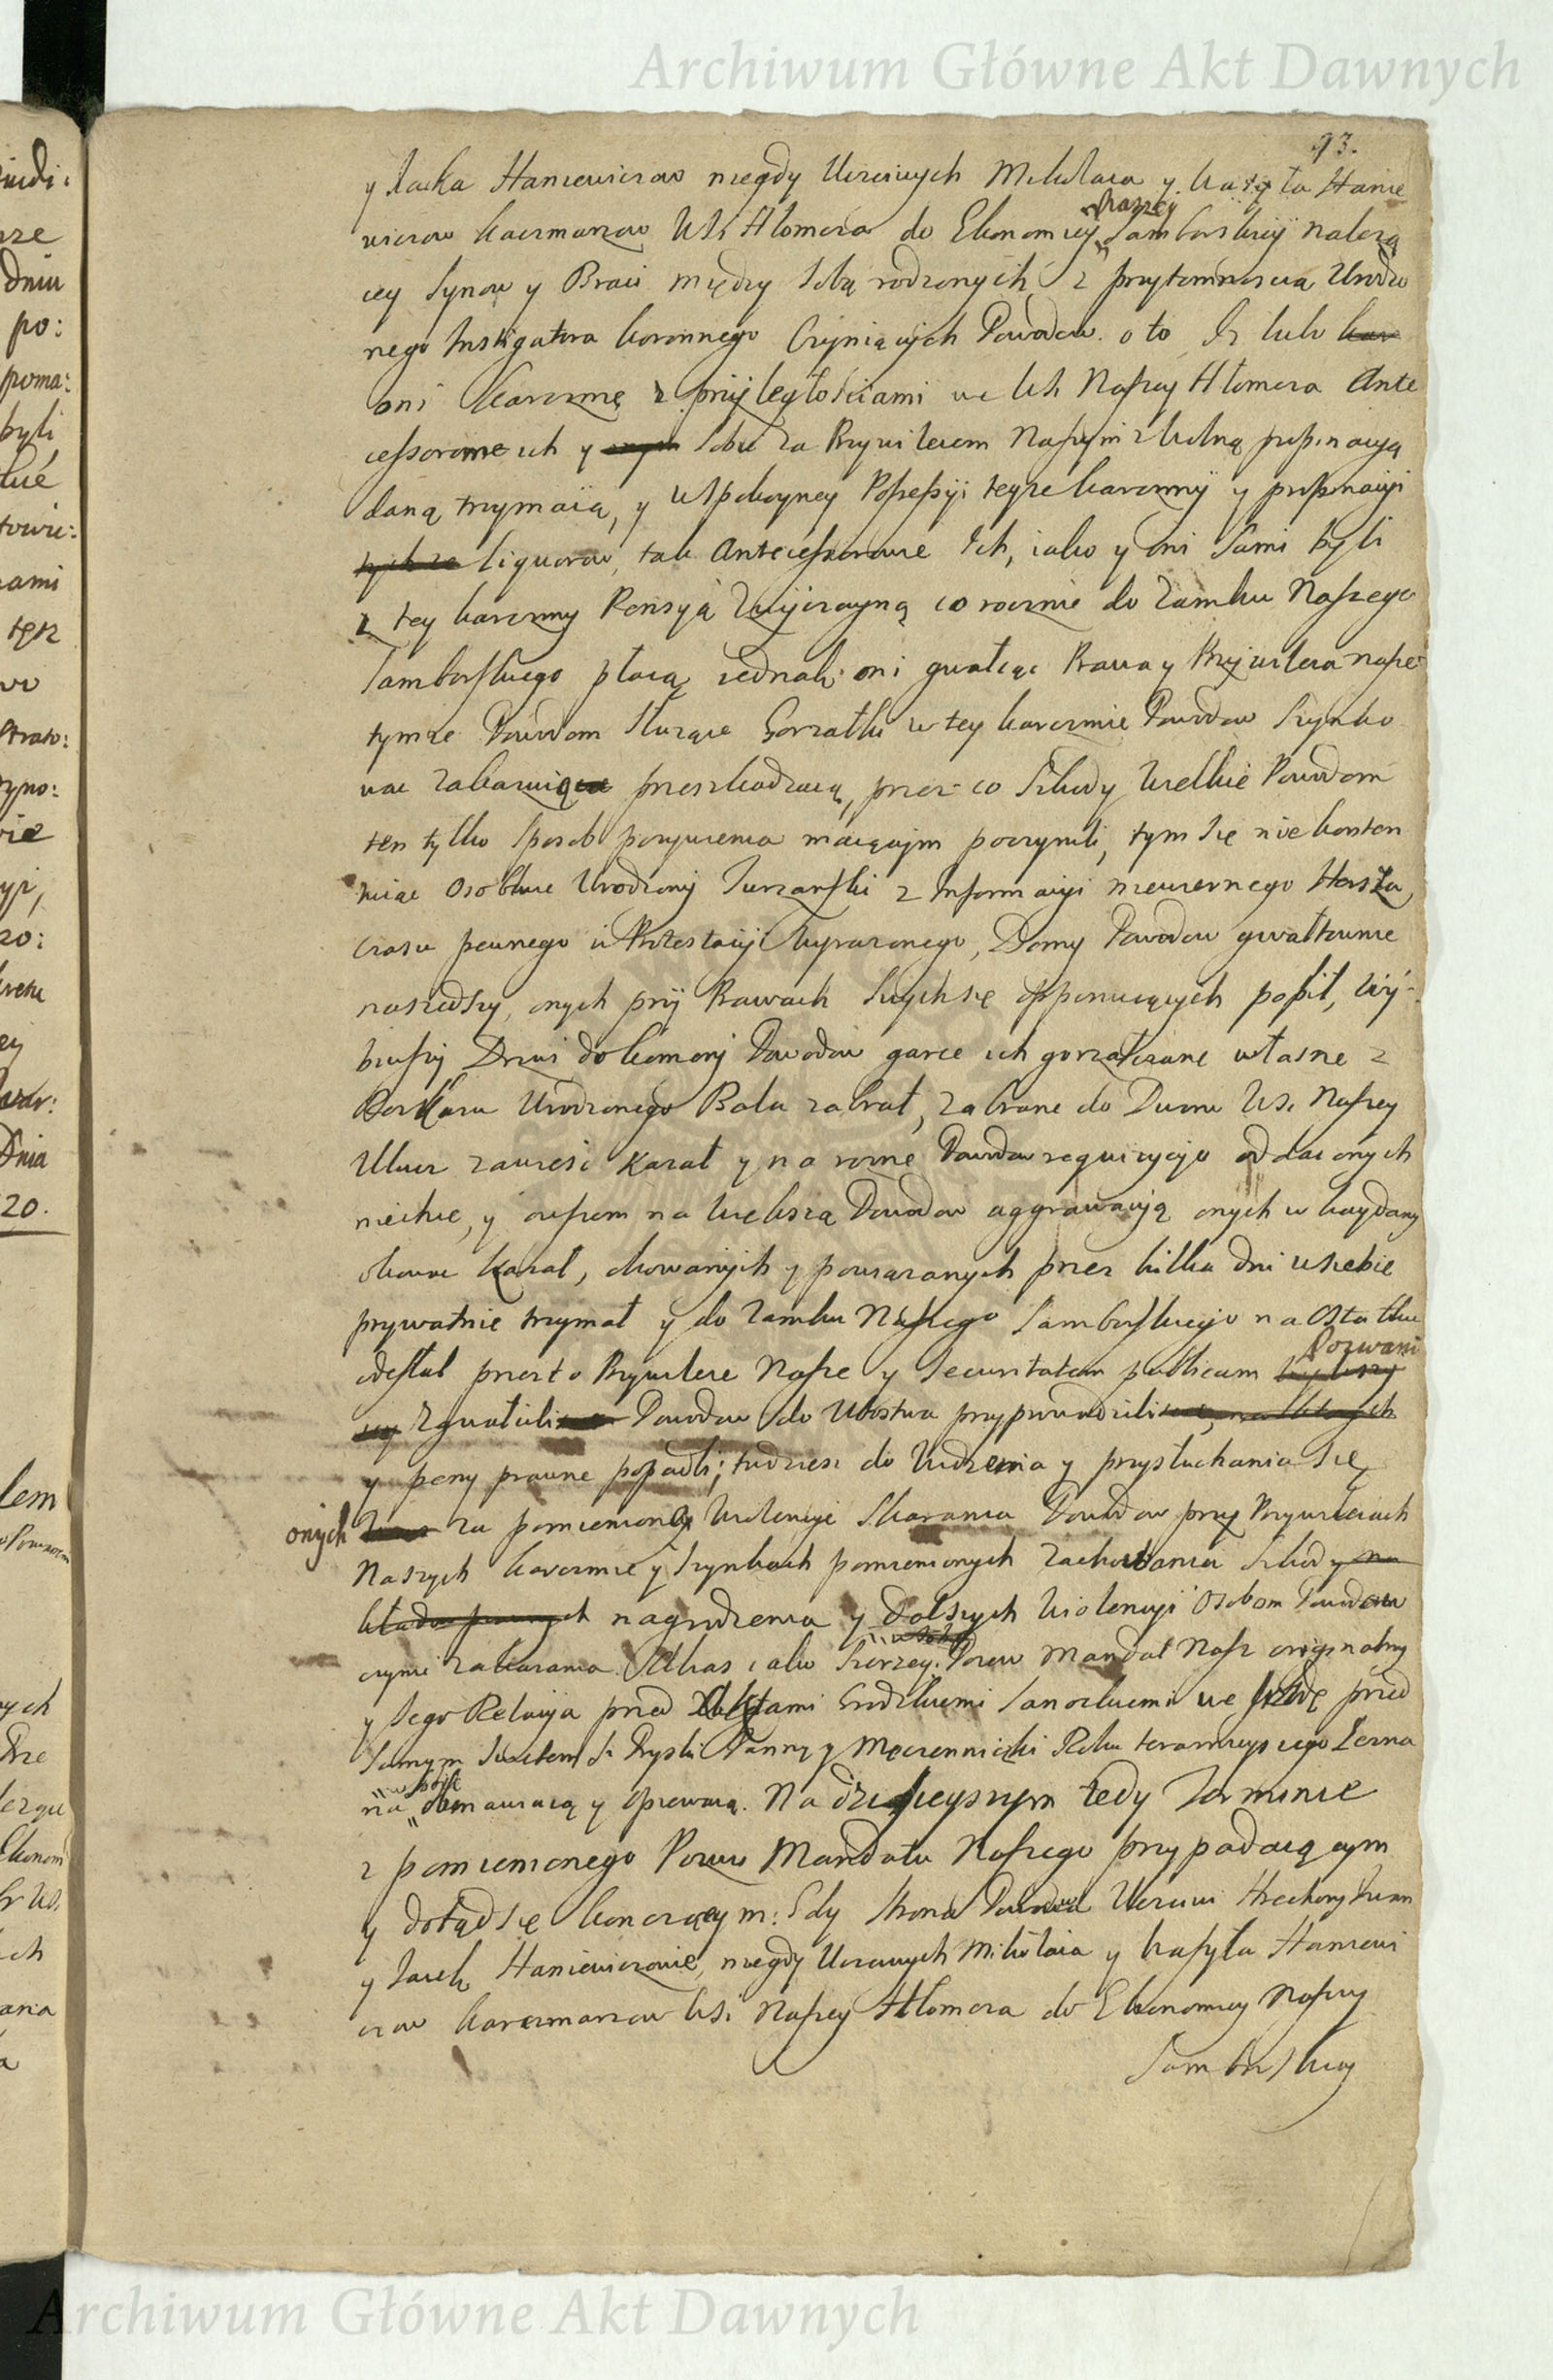 Archiwum Główne Akt Dawnych
93.
y Jacka Haniewiczow niegdy Uczciwych Mikołaia y Wasyla Hanie
wiczow karczmarzow Wsi Hłomcza do Ekonomiey Naszey Samborskiey należą
cey Synow y Braci między sobą rodzonych z przytomnoscią Urodzo
nego Instigatora koronnego Czyniących Powodow. o to Iż lubo kar
oni karczmę z przyległosciami we Wsi Naszey Hłomcza Ante
cessorom ich y onym sobie za Przywileiem Naszym z wolną propinacyą
daną trzymaią, y w spokoyney Possessyi teyże karczmy y propinacyi
liquorow, tak Antecessorowie Ich, iako y oni sami byli
z tey karczmy Pensyą zwyczayną co rocznie do Zamku Naszego
Samborskiego płacą iednak oni gwałcąc Prawa y Przywileia nasze
tymże Powodom służące Gorzałki w tey karczmie Powodow szynko
wac zakazuiąc przeszkadzaią, przez co szkody wielkie Powodom
ten tylko sposob pożywienia maiącym poczynili, tym się nie konten
tuiąc osobliwie Urodzony Jurzanski z Informacyi niewiernego Herszka
czasu pewnego w Protestacyi wyrażonego, Domy Powodow gwałtownie
naszedszy, onych przy Prawach swych się opponuiących pobił, wy-
biwszy Drzwi do komory Powodow garce ich gorzałczane własne z
Urodzonego Bala zabrał, zabrane do Dworu Wsi Naszey
Ulucz zawiesc kazał y na rozne Powodow requizycye oddac onych
niechce, y owszem na większą Powodow aggrawacyą onych w kaydany
okowac kazał, okowanych y powiązanych przez kilka dni u siebie
prywatnie trzymał y do Zamku Naszego Samborskiego na Ostatku
odesłał przez to Przywileie Nasze y Securitatem publicam Pozwani
zgwałcili Powodow do Ubostwa przyprowadzili
y peny prawne popadli; tudziesz do Widzenia y przysłuchania się
onych za pomienione Wiolencye skarania Powodow przy Przywileiach
Naszych karczmie y szynkach pomienionych zachowania szkody na
nagrodzenia y dalszych Wiolencyi Osobom Powodow
czynic zakazania. iako szerzey Pozew Mandat Nasz oryginalny
y Iego Relacya przed Aktami Grodzkiemi Sanockiemi we srodę przed
Samym Swiętem S. Pryski Panny y Męczenniczki Roku teraznieyszego zezna
na w sobie obmawiaią y opiewaią. Na dzisieyszym tedy Terminie
z pomienionego Pozwu Mandatu Naszego przypadaiącym
y dotąd się konczącym: Gdy strona Powodowa Uczciwi Hrehory Iwan
y Jacek Haniewiczowie, niegdy Uczciwych Mikołaia y Wasyla Haniewi
czow karczmarzow Wsi Naszey Hłomcza do Ekonomiey Naszey
Samborskiey
Archiwum Główne Akt Dawnych